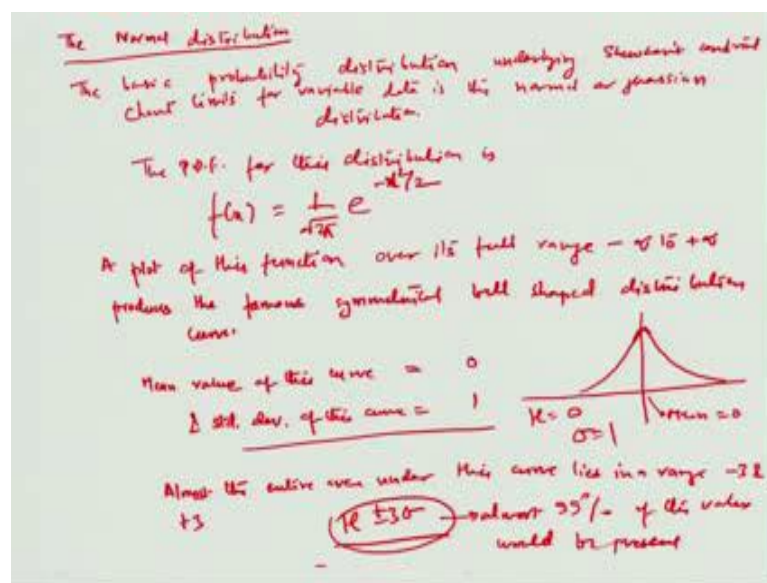 The Normal distribution
The basic probability distribution underlying Shewhart's control
Chart limits for variable data is the normal or gaussian
distribution.
The P.D.F. for this distribution is
f(x) = 1/√2π e^-x²/2
A plot of this function over its full range -∞ to +∞
produces the famous symmetrical bell shaped distribution
curve.
Mean value of this curve = 0
& std. dev. of this curve = 1
μ = 0
σ=1
Mean = 0
Almost the entire area under this curve lies in a range -3 &
+3
μ ±3σ → almost 99% of the values
would be present